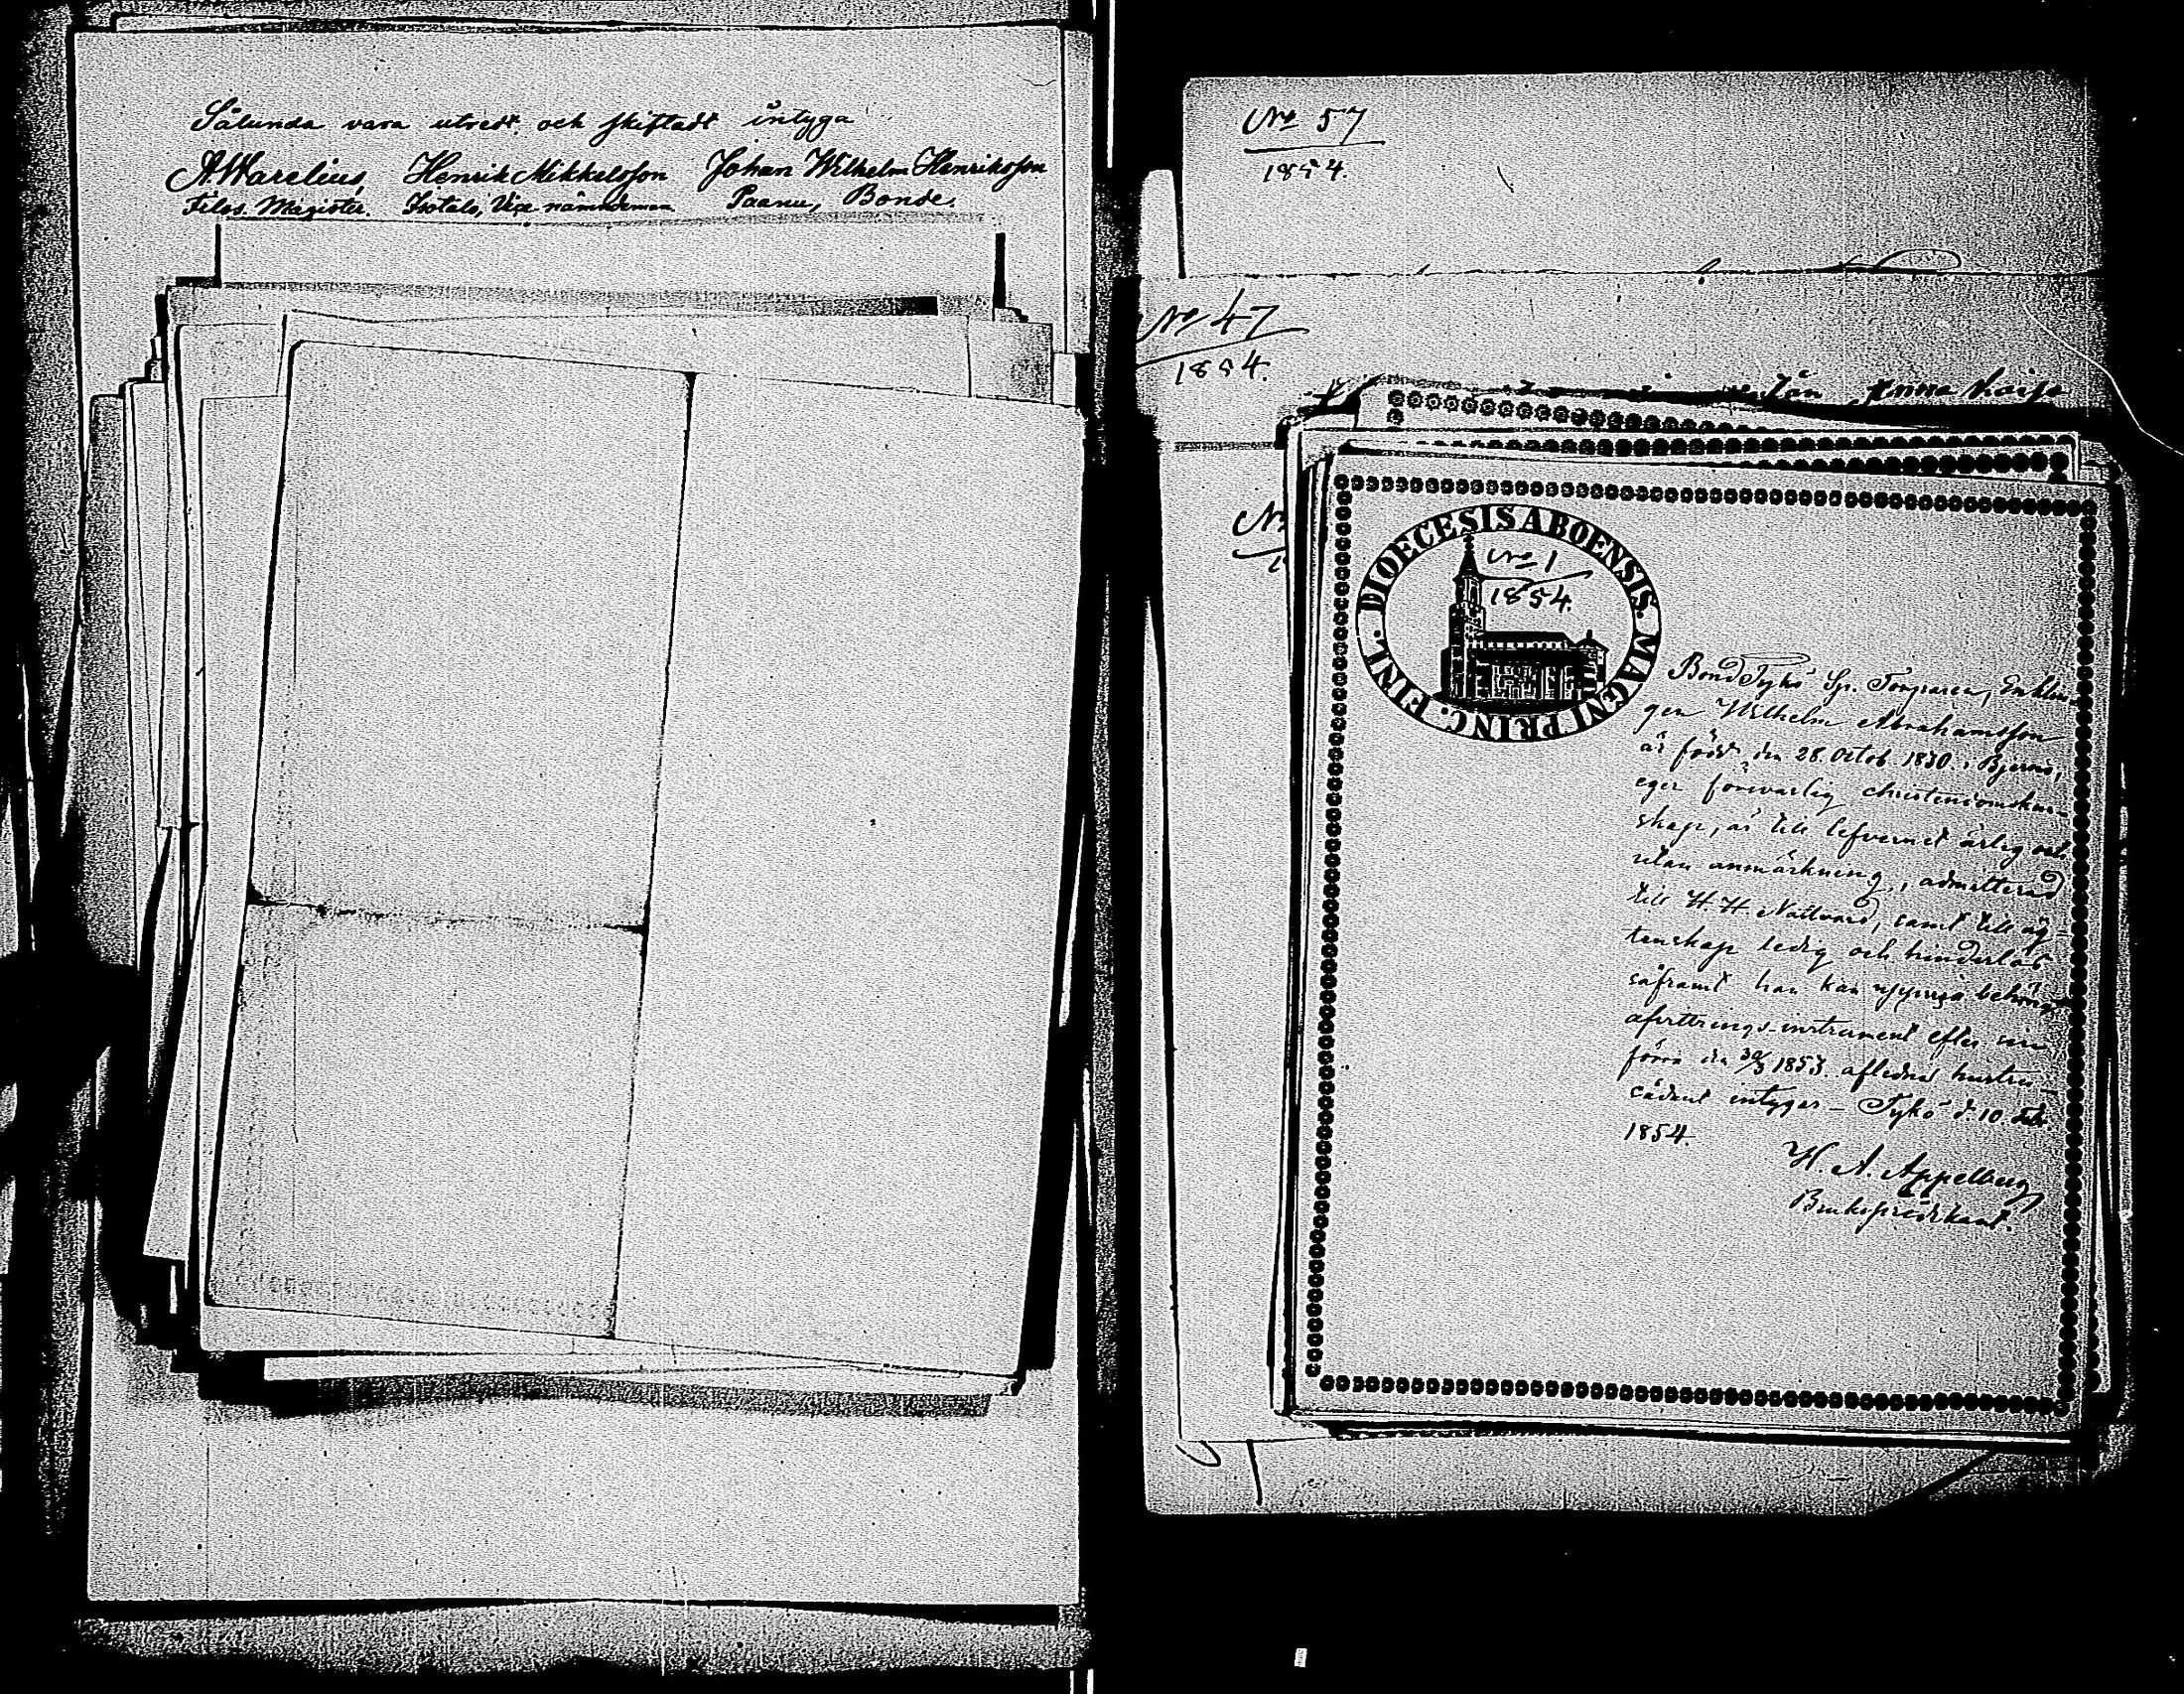 Sålunda vara utredt och skiftadt intyga
AWarelius, Henrik Mikkelsson Johan Wilhelm Henriksson
Filos. Magister. Isotalo, Vice nämndeman Paanu, Bonde.
No 57
1854.
No 47
1854.
Anna Loisa
DIOECESIS ABOENSIS. MAGNI PRINC. FINL.
No 1
1854.
Bond Tykö Sp. Enklin
gen Wilhelm Abrahamsson
är född den 28. Octob. 1830. i Bjerno,
eger försvarlig christendomskun-
skap, är till lefvernet ärlig och
utan anmärkning, admitterad
till H. H. Nattvard, samt till äg-
tenskap ledig och hinderlös
såframt han kan uppvisa behörigt
afvittrings-instrument efter sin
förra den 30/3 1853. aflidna hustru -
sådant intygar - Tykö d. 10. Feb.
1854.
H. A. Appelberg
Brukspredikant.